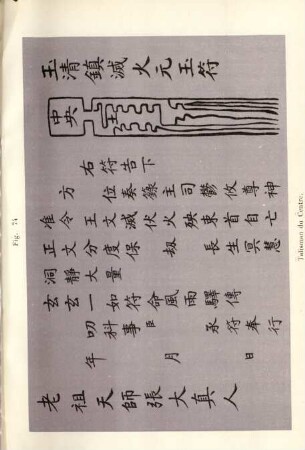 Fig. 74
玉清鎮滅火元玉符
中央
土
右符告下
方 位奏籙主司鬱攸尊神
准令王文滅伏火殃束首自亡
正文分度保劫長生冥慧
洞靜大量
玄玄一如符命風雨驛傳
叨科事臣 承符奉行
年 月 日
老祖天師張大真人
Talisman du Centre.